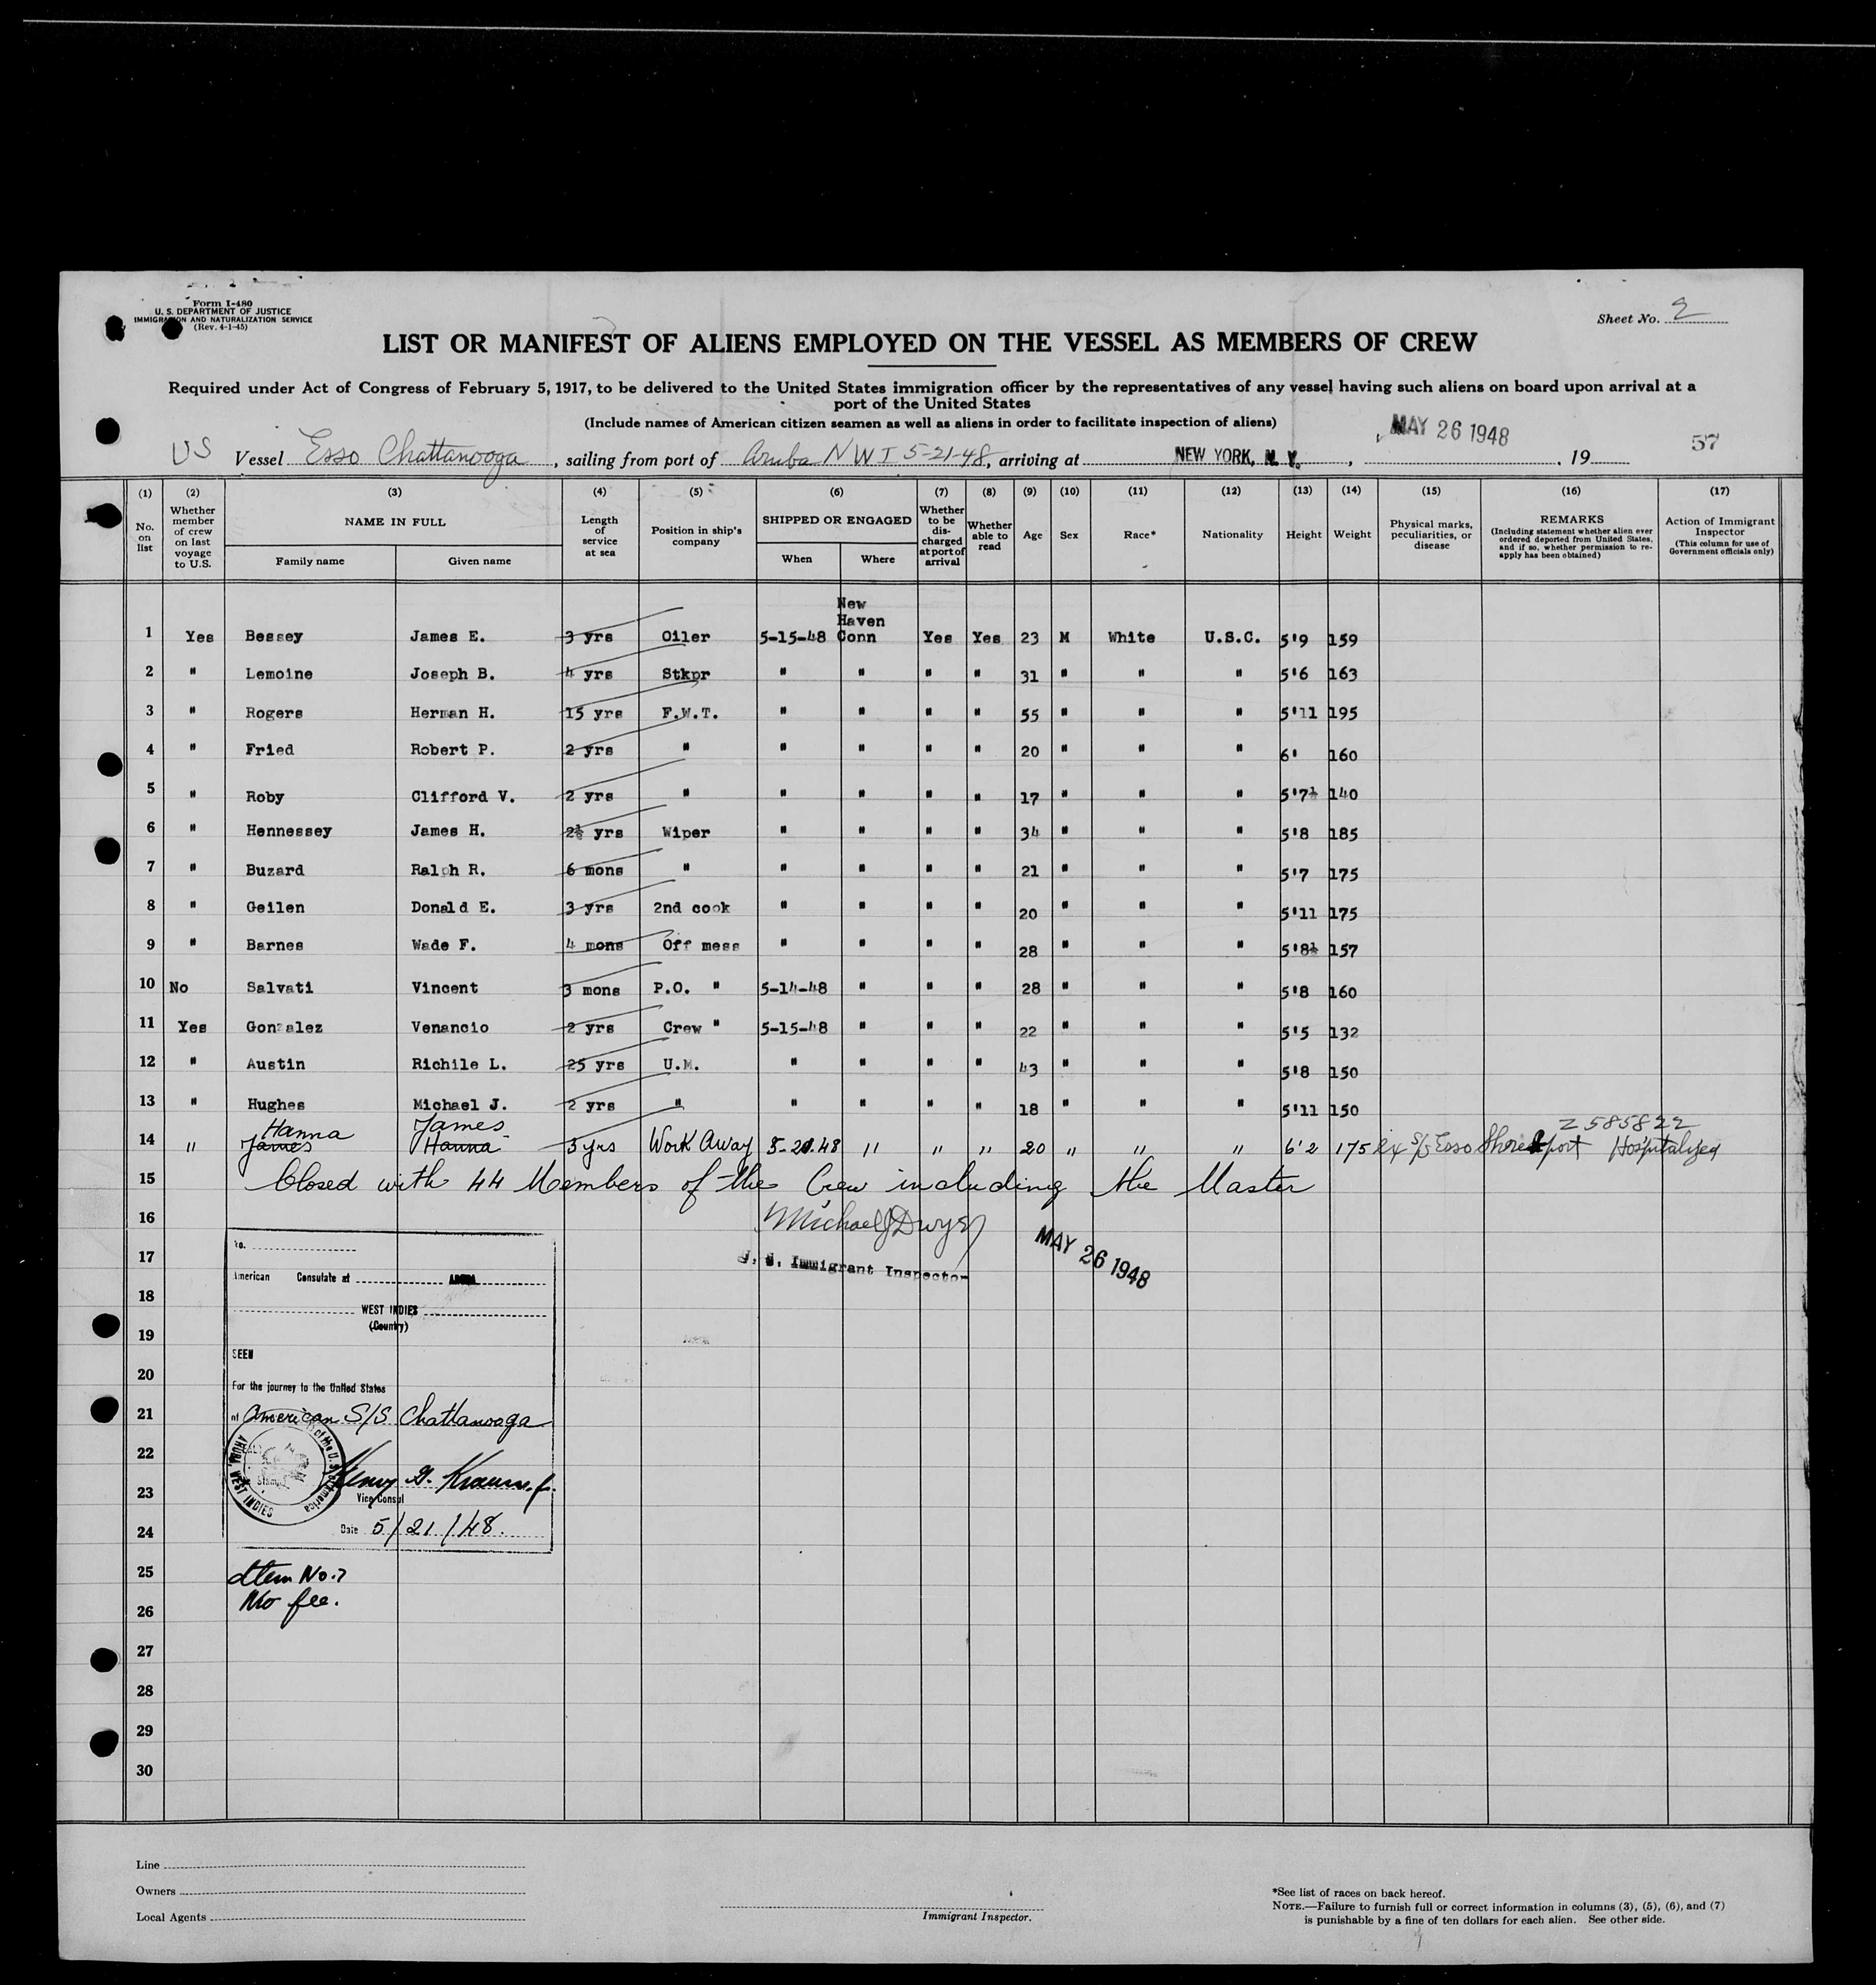 Form I-480
U. S. DEPARTMENT OF JUSTICE
IMMIGRATION AND NATURALIZATION SERVICE
(Rev. 4-1-45)
Sheet No. 2
LIST OR MANIFEST OF ALIENS EMPLOYED ON THE VESSEL AS MEMBERS OF CREW
Required under Act of Congress of February 5, 1917, to be delivered to the United States immigration officer by the representatives of any vessel having such aliens on board upon arrival at a
port of the United States
(Include names of American citizen seamen as well as aliens in order to facilitate inspection of aliens)
US Vessel Esso Chattanooga, sailing from port of Aruba NWI 5-21-48, arriving at NEW YORK, N. Y., MAY 26 1948, 19 57
(1) (2) (3) (4) (5) (6) (7) (8) (9) (10) (11) (12) (13) (14) (15) (16) (17)
No. on list
Whether member of crew on last voyage to U.S.
NAME IN FULL
Family name Given name
Length of service at sea
Position in ship's company
SHIPPED OR ENGAGED
When Where
Whether to be discharged at port of arrival
Whether able to read
Age
Sex
Race*
Nationality
Height
Weight
Physical marks, peculiarities, or disease
REMARKS
(Including statement whether alien ever ordered deported from United States, and if so, whether permission to re-apply has been obtained)
Action of Immigrant Inspector
(This column for use of Government officials only)
1 Yes Bessey James E. 3 yrs Oiler 5-15-48 New Haven Conn Yes Yes 23 M White U.S.C. 5'9 159
2 " Lemoine Joseph B. 4 yrs Stkpr " " " " 31 " " " 5'6 163
3 " Rogers Herman H. 15 yrs F.W.T. " " " " 55 " " " 5'11 195
4 " Fried Robert P. 2 yrs " " " " " 20 " " " 6' 160
5 " Roby Clifford V. 2 yrs " " " " " 17 " " " 5'7½ 140
6 " Hennessey James H. 2½ yrs Wiper " " " " 34 " " " 5'8 185
7 " Buzard Ralph R. 6 mons " " " " " 21 " " " 5'7 175
8 " Geilen Donald E. 3 yrs 2nd cook " " " " 20 " " " 5'11 175
9 " Barnes Wade F. 4 mons Off mess " " " " 28 " " " 5'8½ 157
10 No Salvati Vincent 3 mons P.O. " 5-14-48 " " " 28 " " " 5'8 160
11 Yes Gonzalez Venancio 2 yrs Crew " 5-15-48 " " " 22 " " " 5'5 132
12 " Austin Richile L. 25 yrs U.M. " " " " 43 " " " 5'8 150
13 " Hughes Michael J. 2 yrs " " " " " 18 " " " 5'11 150
Hanna James Z 585822
14 " James Hanna 3 yrs Work Away 5-21-48 " " " 20 " " " 6'2 175 Ex S/S Esso Shreveport Hospitalized
15 Closed with 44 Members of the Crew including the Master
16 Michael J Dwyer
17 U. S. Immigrant Inspector MAY 26 1948
18
19
20
21
22
23
24
25
26
27
28
29
30
No.
American Consulate at ARUBA
WEST INDIES
(Country)
SEEN
For the journey to the United States
of American S/S Chattanooga
ARUBA, WEST INDIES
of the U. S. of America
Vice Consul
Date 5/21/48.
Item No. 7
No fee.
Line
Owners
Local Agents
Immigrant Inspector.
*See list of races on back hereof.
NOTE.—Failure to furnish full or correct information in columns (3), (5), (6), and (7)
is punishable by a fine of ten dollars for each alien. See other side.